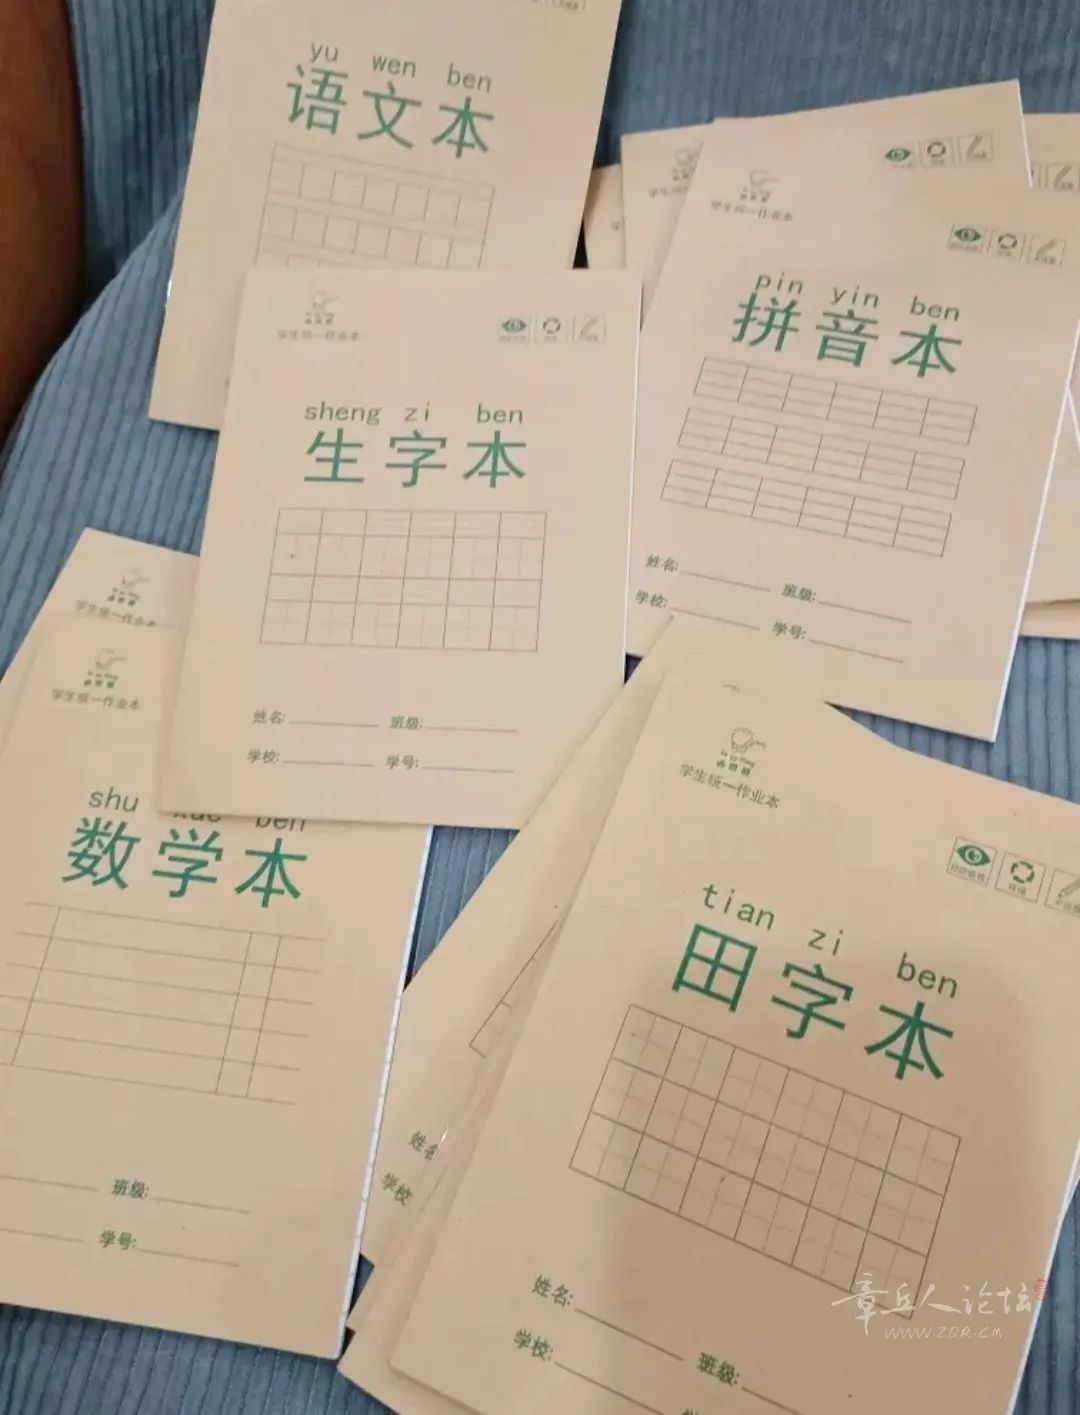 yu wen ben
语文本
学生统一作业本
pin yin ben
拼音本
姓名:
班级:
学校:
学号:
学生统一作业本
sheng zi ben
生字本
姓名:
班级:
学校:
学号:
学生统一作业本
学生统一作业本
shu xue ben
数学本
班级:
学号:
学生统一作业本
tian zi ben
田字本
姓名:
班级:
学校:
姓名
学校
章丘人论坛
www.ZQR.cm